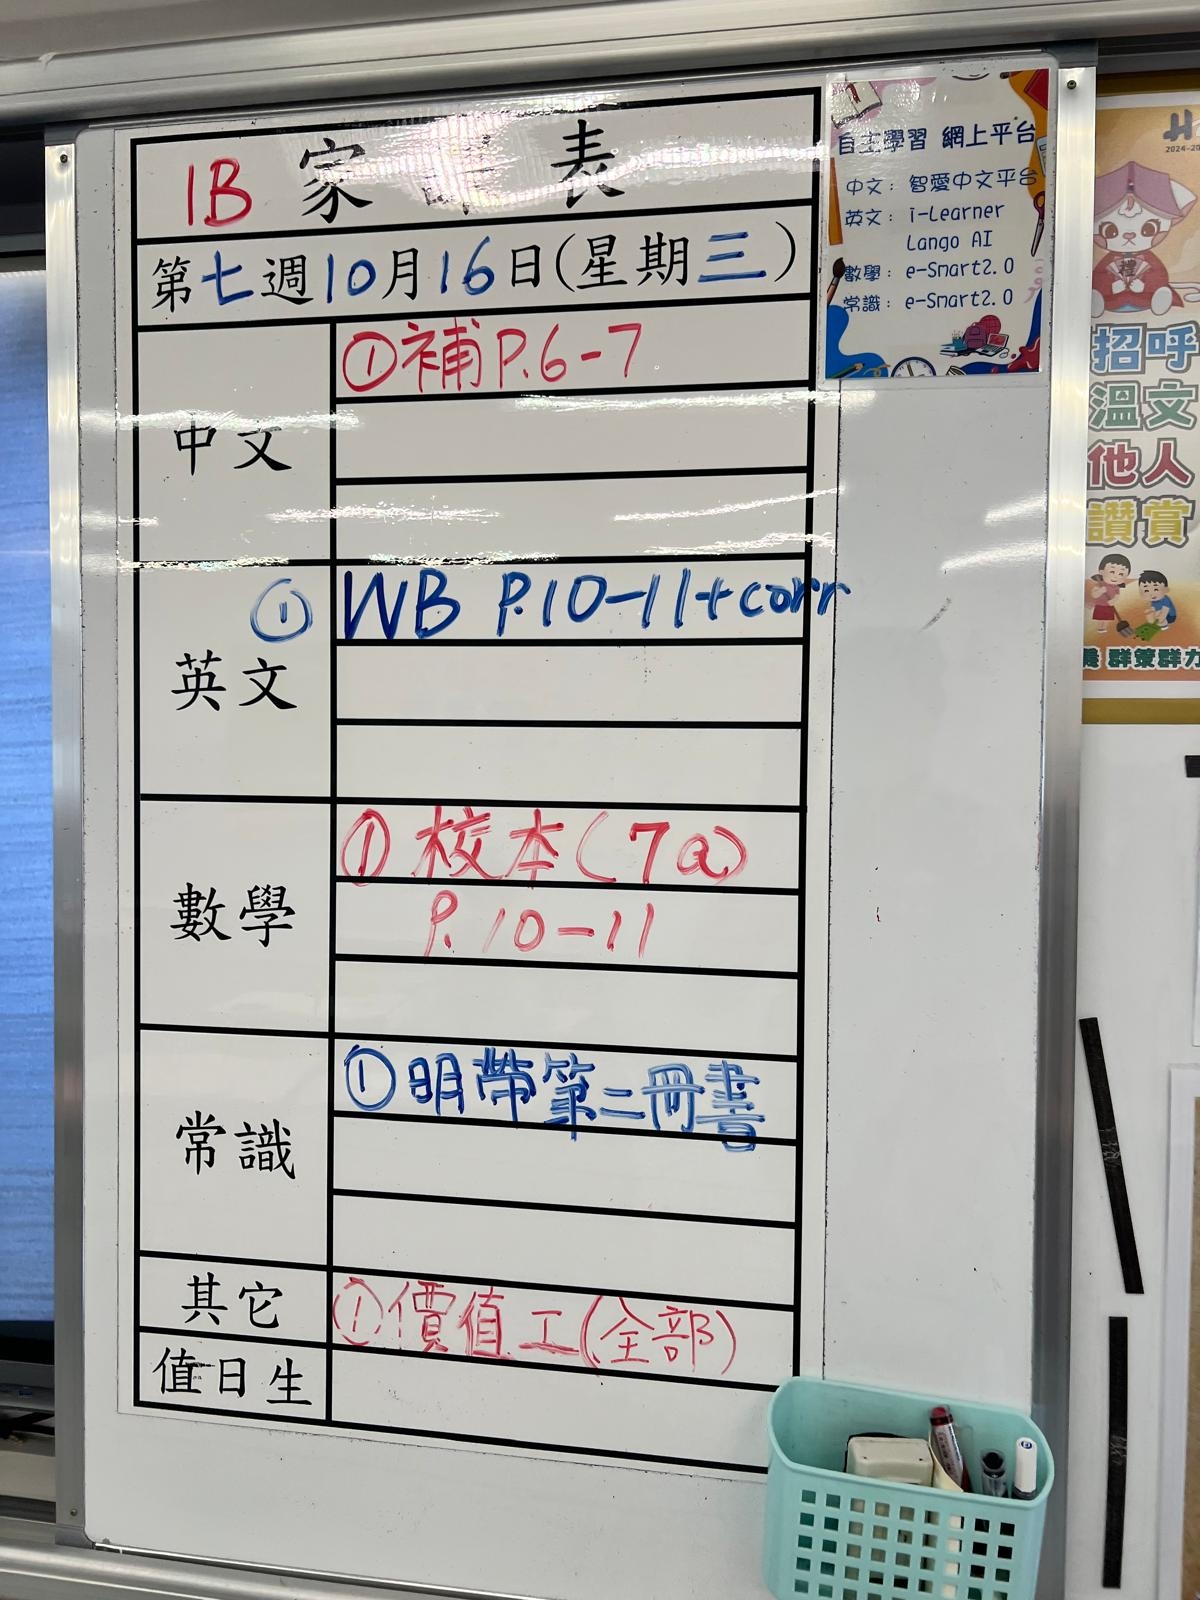 1B 家 表
第七週10月16日(星期三)
中文
①補P.6-7
英文
① WB P.10-11+corr
數學
①校本(7a)
P.10-11
常識
①明帶第二冊書
其它
①價值工(全部)
值日生
自主學習 網上平台
中文：智愛中文平台
英文：i-Learner
Lango AI
數學：e-Smart2.0
常識：e-Smart2.0
2024-20
禮
招呼
溫文
他人
讚賞
群策群力